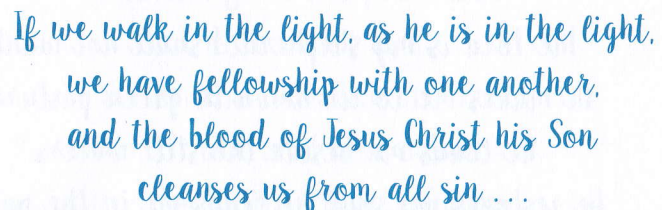 If we walk in the light, as he is in the light,
we have fellowship with one another,
and the blood of Jesus Christ his Son
cleanses us from all sin . . .